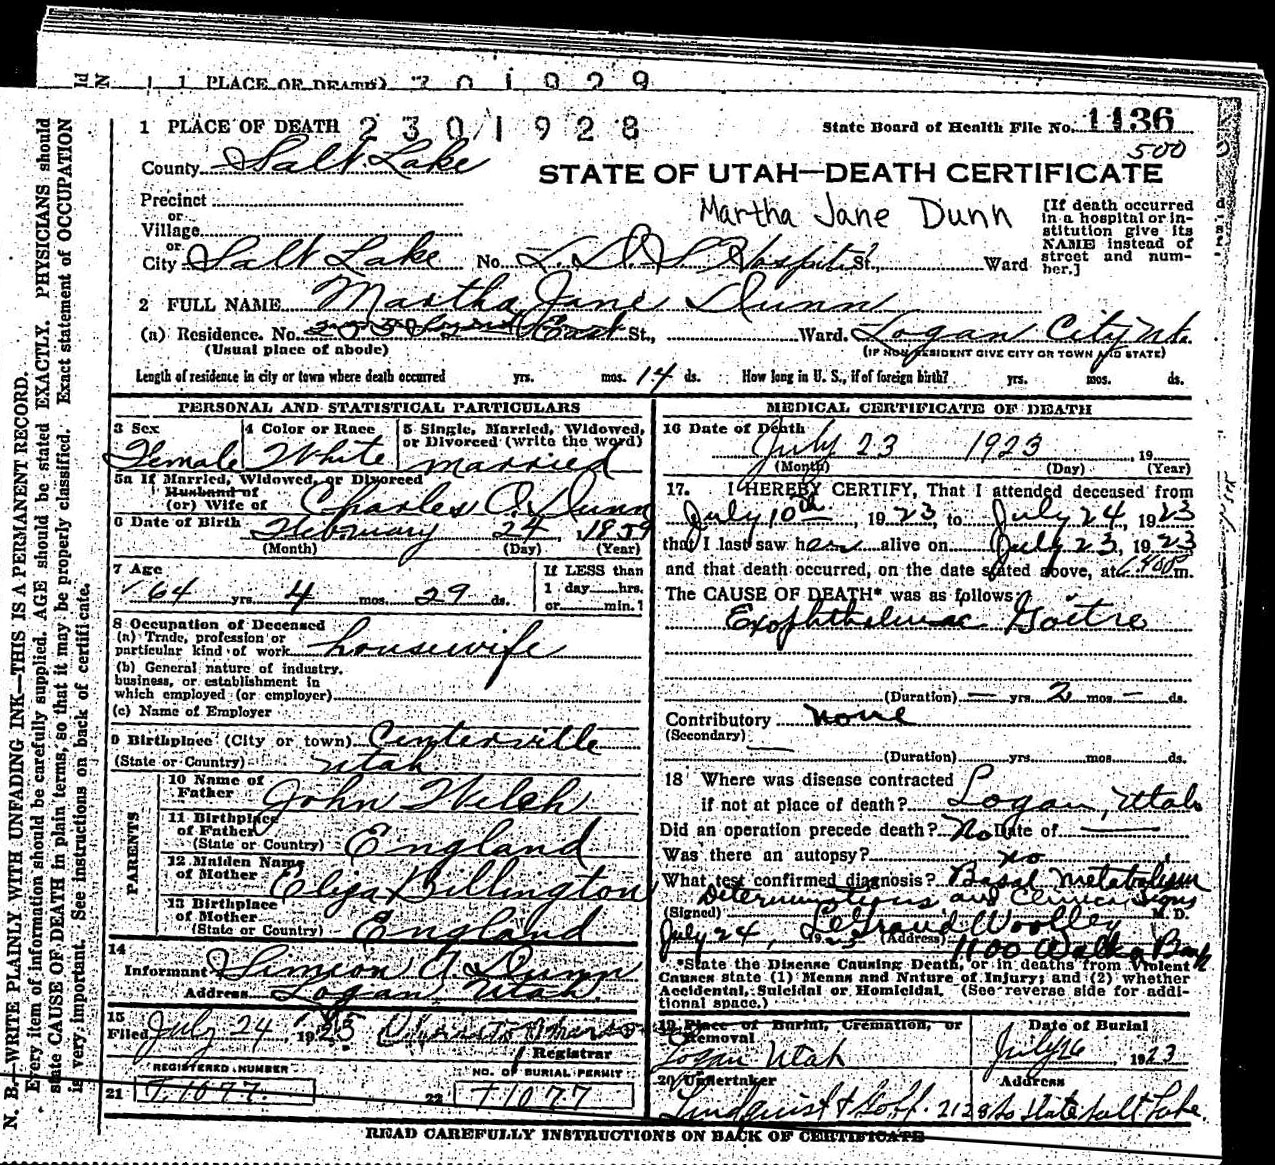 1 PLACE OF DEATH) 7 0 1 9 2 9
1 PLACE OF DEATH 2 3 0 1 9 2 8
State Board of Health File No. 1136
500
County Salt Lake
STATE OF UTAH—DEATH CERTIFICATE
Martha Jane Dunn
[If death occurred in a hospital or institution give its NAME instead of street and number.]
Precinct
or
Village
or
City Salt Lake No. L. D. S. Hospital St., Ward
2 FULL NAME Martha Jane Dunn
(a) Residence. No. East St., Ward. Logan City Ut.
(Usual place of abode) (IF NON-RESIDENT GIVE CITY OR TOWN AND STATE)
Length of residence in city or town where death occurred yrs. mos. 14 ds. How long in U. S., if of foreign birth? yrs. mos. ds.
PERSONAL AND STATISTICAL PARTICULARS
3 Sex Female
4 Color or Race White
5 Single, Married, Widowed, or Divorced (write the word) married
5a If Married, Widowed, or Divorced
Husband of
(or) Wife of Charles O. Dunn
6 Date of Birth February 24, 1859
(Month) (Day) (Year)
7 Age 64 yrs. 4 mos. 29 ds.
If LESS than
1 day hrs.
or min.?
8 Occupation of Deceased
(a) Trade, profession or
particular kind of work housewife
(b) General nature of industry,
business, or establishment in
which employed (or employer)
(c) Name of Employer
9 Birthplace (City or town) Centerville
(State or Country) Utah
PARENTS
10 Name of Father John Welch
11 Birthplace of Father
(State or Country) England
12 Maiden Name of Mother Eliza Billington
13 Birthplace of Mother
(State or Country) England
14
Informant Simeon A. Dunn
Address Logan Utah.
15
Filed July 24, 1923
Registrar
REGISTERED NUMBER
21 T.1077.
NO. OF BURIAL PERMIT
22 T1077
MEDICAL CERTIFICATE OF DEATH
16 Date of Death
July 23 1923, 19
(Month) (Day) (Year)
17. I HEREBY CERTIFY, That I attended deceased from
July 10th, 1923, to July 24, 1923
that I last saw her alive on July 23, 1923
and that death occurred, on the date stated above, at m.
The CAUSE OF DEATH* was as follows:
Exophthalmic Goitre
(Duration) — yrs. 2 mos. — ds.
Contributory none
(Secondary)
(Duration) yrs. mos. ds.
18 Where was disease contracted
if not at place of death? Logan, Utah
Did an operation precede death? No Date of —
Was there an autopsy? no
What test confirmed diagnosis? Basal Metabolism
Determinations and Clinical Signs
(Signed) LeGrand Woolley M. D.
July 24, 1923 (Address) 1100 Walker Bank
*State the Disease Causing Death, or in deaths from Violent
Causes state (1) Means and Nature of Injury; and (2) whether
Accidental, Suicidal or Homicidal. (See reverse side for additional space.)
19 Place of Burial, Cremation, or Removal
Logan Utah
Date of Burial
July 26 1923
20 Undertaker Address
Lindquist & Goff. 2128 So State Salt Lake.
READ CAREFULLY INSTRUCTIONS ON BACK OF CERTIFICATE
N. B.—WRITE PLAINLY WITH UNFADING INK—THIS IS A PERMANENT RECORD.
Every item of information should be carefully supplied. AGE should be stated EXACTLY. PHYSICIANS should
state CAUSE OF DEATH in plain terms, so that it may be properly classified. Exact statement of OCCUPATION
is very important. See instructions on back of certificate.